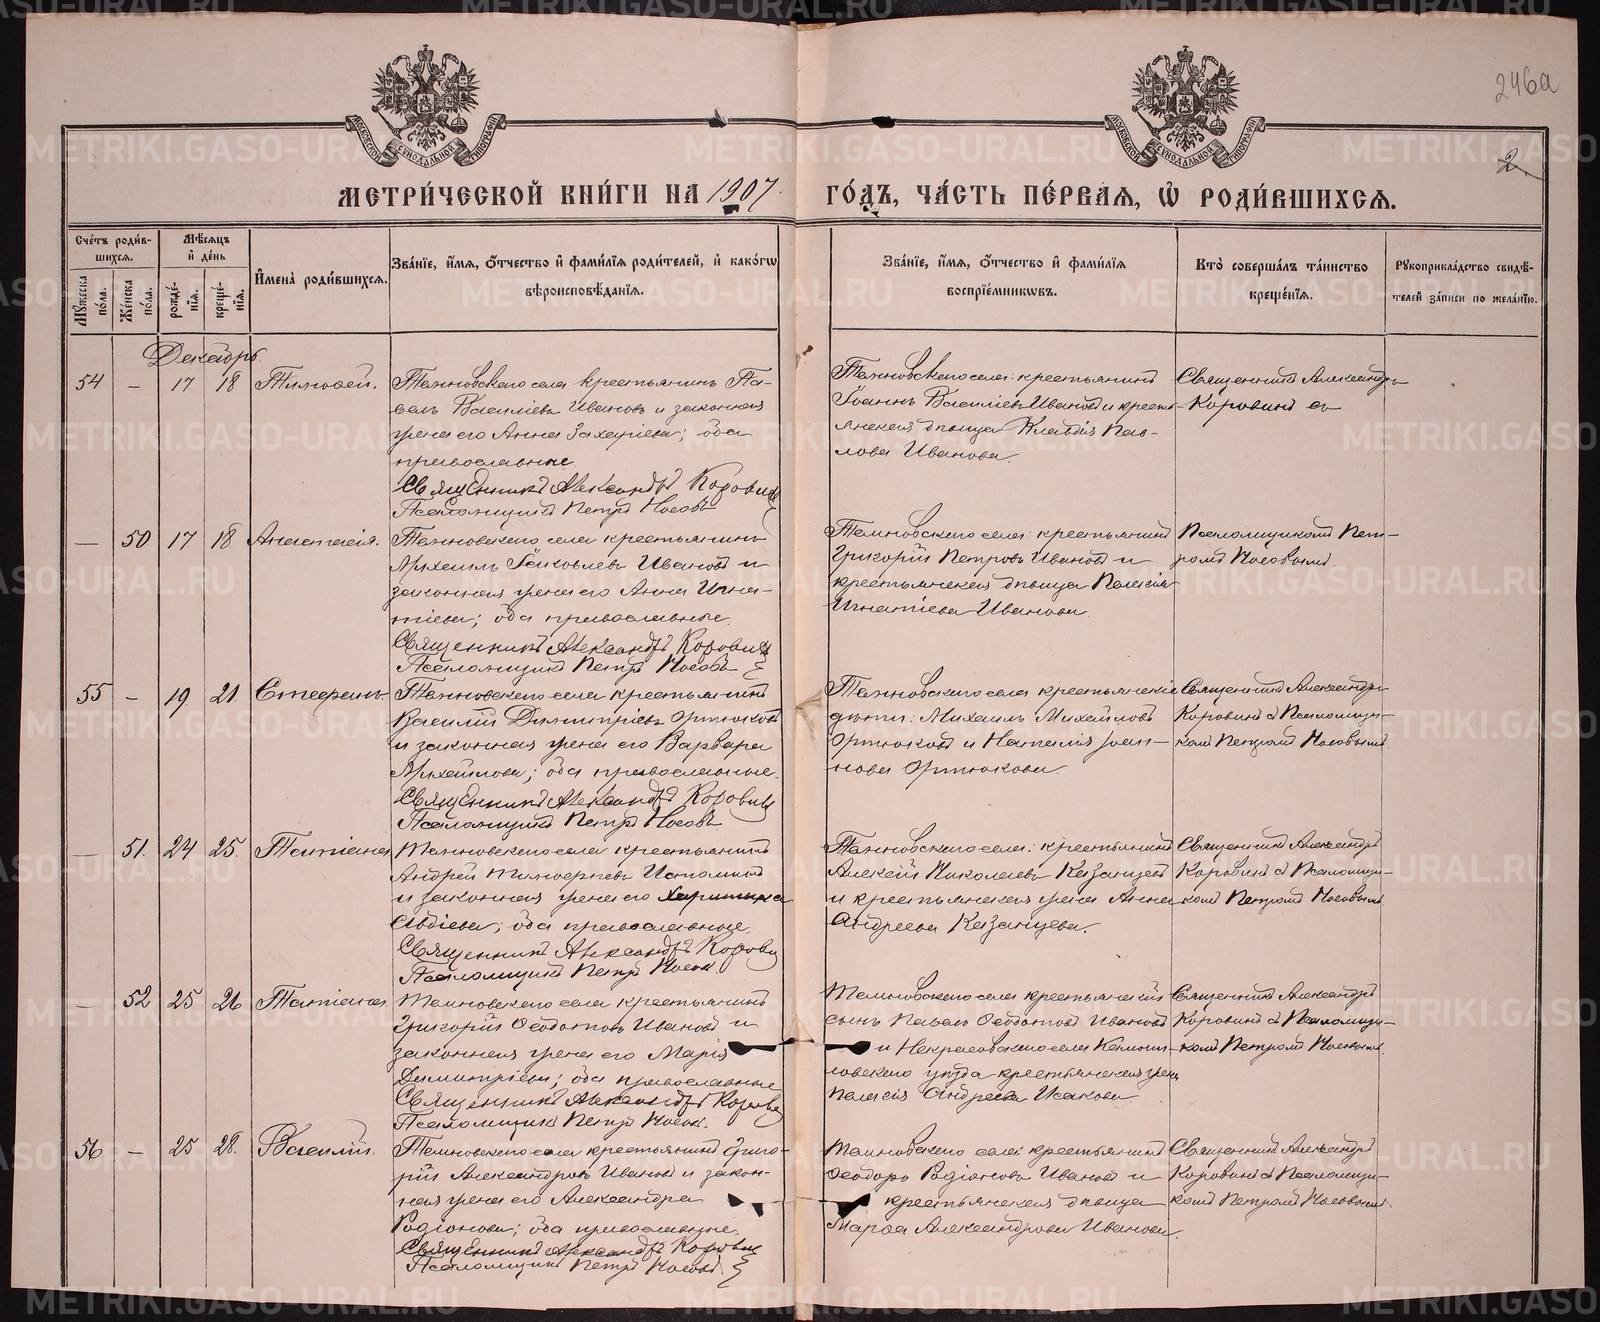 246а
2
МЕТРИ́ЧЕСКОЙ КНИ́ГИ НА 1907 ГО́ДЪ, ЧА́СТЬ ПЕ́РВАЯ, Ѡ РОДИ́ВШИХСЯ.
Сче́тъ роди́вшихся.
Му́жеска по́ла.
Же́нска по́ла.
Мѣ́сяцъ и́ де́нь
рожде́нїя.
креще́нїя.
И҆мена̀ роди́вшихся.
Зва́нїе, и҆́мя, ѻ҆́тчество и҆ фами́лїя роди́телей, и҆ како́гѡ вѣроисповѣ́данїя.
Зва́нїе, и҆́мя, ѻ҆́тчество и҆ фами́лїя воспрїе́мниковъ.
Кто̀ соверша́лъ та́инство креще́нїя.
Рꙋкоприкла́дство свидѣ́телей за́писи по жела́нїю.
Декабрь
54 — 17 18 Тимофей.
Темновского села крестьянинъ Павелъ Василіевъ Ивановъ и законная
жена его Анна Захаріева; оба
православные.
Священникъ Александръ Коровинъ
Псаломщикъ Петръ Носовъ
крестьянинъ
Іоаннъ Василіевъ Ивановъ и крестьянская дѣвица Клавдія Павлова Иванова.
Священникъ Александръ
Коровинъ съ
— 50 17 18 Анастасія.
села крестьянинъ
Михаилъ Іаковлевъ Ивановъ и
законная жена его Анна Игнатіева; оба православные.
Священникъ Александръ Коровинъ
Псаломщикъ Петръ Носовъ
крестьянинъ
Григорій Петровъ Ивановъ и
крестьянская дѣвица Пелагія
Игнатіева Иванова.
Псаломщикомъ Петромъ Носовымъ.
55 — 19 21 Стефанъ
села крестьянинъ
Василій Димитріевъ Ортюковъ
и законная жена его Варвара
Михайлова; оба православные.
Священникъ Александръ Коровинъ
Псаломщикъ Петръ Носовъ
села крестьянскіе
дѣти: Михаилъ Михайловъ
Ортюковъ и Наталія Іоаннова Ортюкова.
Священникъ Александръ
Коровинъ съ Псаломщикомъ Петромъ Носовымъ.
— 51. 24 25. Татіана
села крестьянинъ
Андрей Тимофеевъ
и законная жена его
Авдіева; оба православные.
Священникъ Александръ Коровинъ
Псаломщикъ Петръ Носовъ.
крестьянинъ
Алексій Николаевъ Казанцевъ
и крестьянская жена Анна
Андреева Казанцева.
Священникъ Александръ
Коровинъ съ Псаломщикомъ Петромъ Носовымъ
— 52 25 26 Татіана.
села крестьянинъ
Григорій Ѳеодотовъ Ивановъ и
законная жена его Марія
Димитріева; оба православные
Священникъ Александръ Коровинъ
Псаломщикъ Петръ Носовъ.
села крестьянскій
сынъ Павелъ Ѳеодотовъ Ивановъ
и Некрасовского села Камышловского уѣзда крестьянская жена
Пелагія Андреева Исакова.
Священникъ Александръ
Коровинъ съ Псаломщикомъ Петромъ Носовымъ.
56 — 25 28. Василій.
села крестьянинъ Григорій Александровъ Ивановъ и законная жена его Александра
Родіонова; оба православные.
Священникъ Александръ Коровинъ
Псаломщикъ Петръ Носовъ.
села крестьянинъ
Ѳеодоръ Родіоновъ Ивановъ и
крестьянская дѣвица
Марѳа Александрова Иванова.
Священникъ Александръ
Коровинъ съ Псаломщикомъ Петромъ Носовымъ.
METRIKI.GASO-URAL.RU